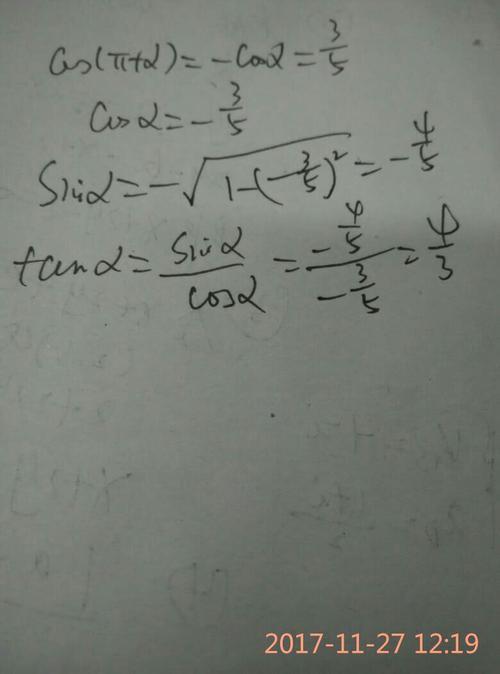 cos(π+α)=-cosα=3/5
cosα=-3/5
sinα=-√(1-(-3/5)²)=-4/5
tanα=sinα/cosα=(-4/5)/(-3/5)=4/3
2017-11-27 12:19